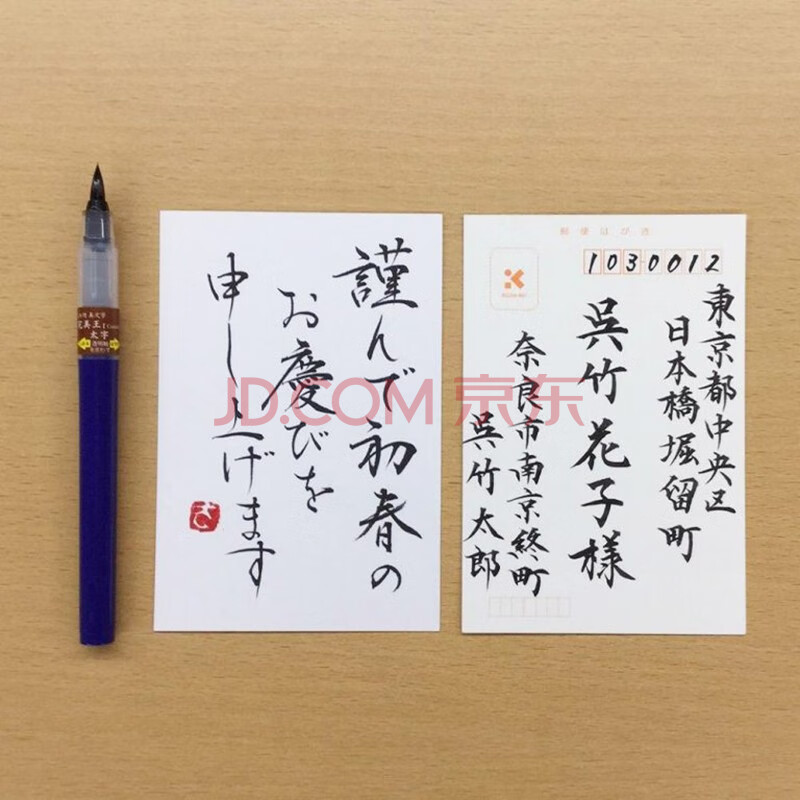 謹んで初春の
お慶びを
申し上げます
郵便はがき
1030012
東京都中央区
日本橋堀留町
呉竹花子様
奈良市南京終町
呉竹太郎
太字
JD.COM 京东